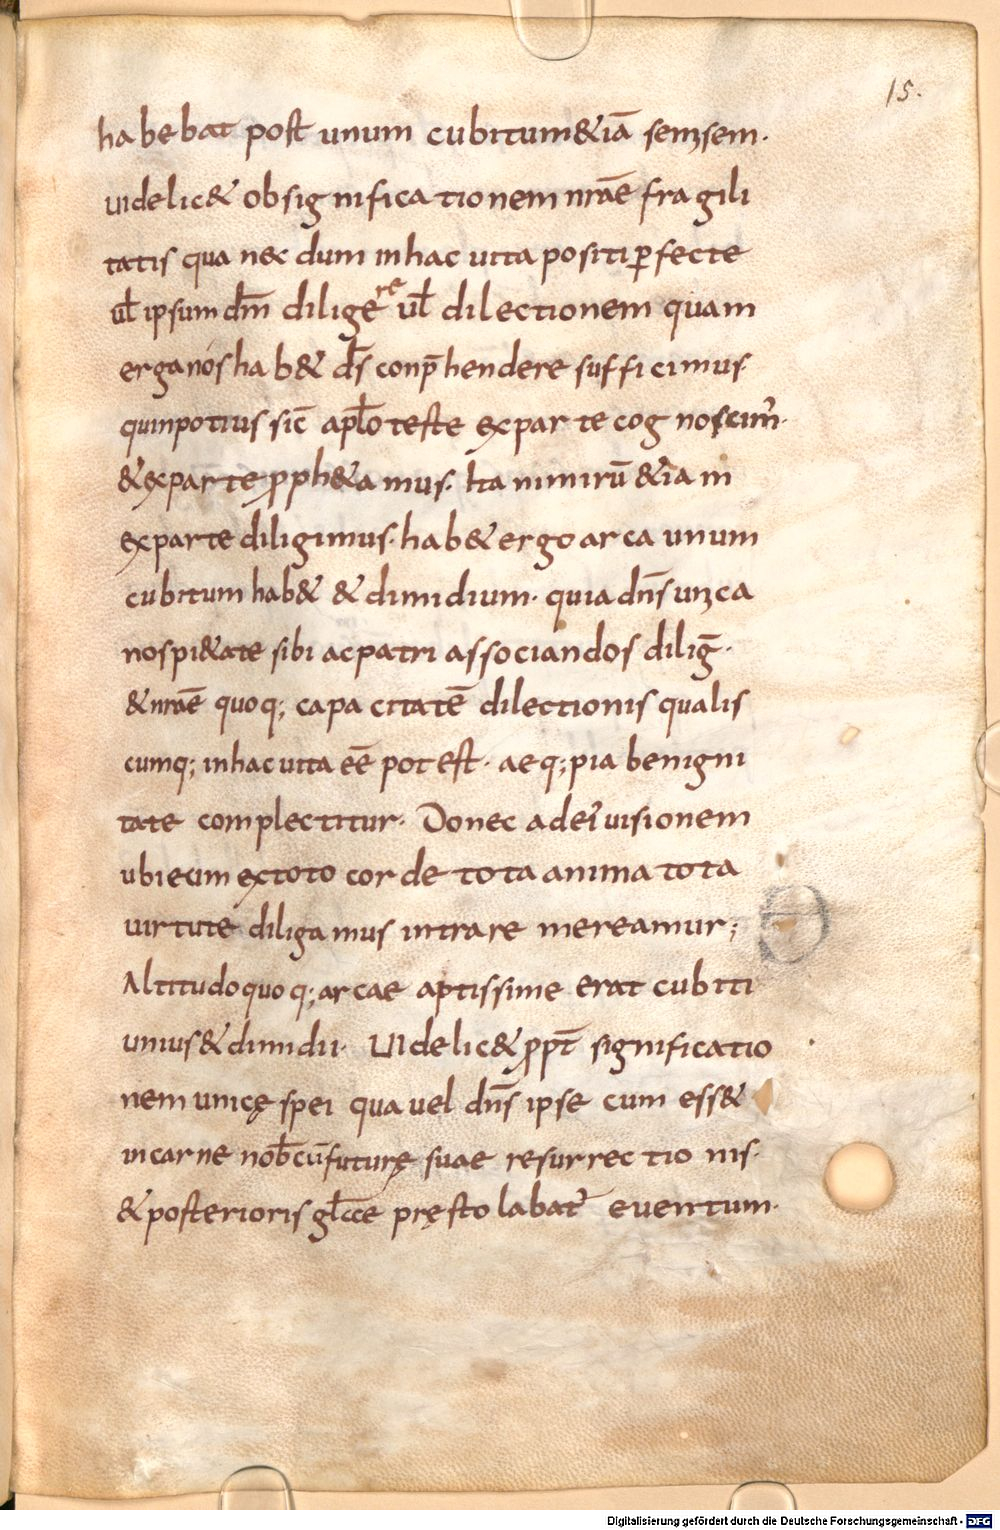 15.
habebat post unum cubitum & iā semissem·
uidelic& ob significationem nrāe fragili
tatis qua nec dum in hac uita positi ꝑfecte
ul̄ ipsum dm̄ diligere ul̄ dilectionem quam
erga nos hab& ds̄ conp̄hendere sufficimus·
quin potius sic̄ apl̄o teste ex parte cognoscim᾽·
& ex parte ꝓph&amus· Ita nimirū &iam
ex parte diligimus· hab& ergo arca unum
cubitum hab& & dimidium· quia dn̄s
nos pi&ate sibi ac patri associandos diliḡ·
& nrāe quoq; capacitatē dilectionis qualis
cumq; in hac uita eē potest· aeq; pia benigni
tate complectitur· Donec ad dei uisionem
ubi eum ex toto corde tota anima tota
uirtute diligamus intrare mereamur;
Altitudo quoq; arcae aptissime erat cubiti
unius & dimidii· Uidelic& ꝓpt̄ significatio
nem unicę spei qua uel dn̄s ipse cum ess&
in carne nob̄cū futurę suae resurrectionis·
& posterioris gl̄ae pręstolabat᾽ euentum·
Digitalisierung gefördert durch die Deutsche Forschungsgemeinschaft - DFG